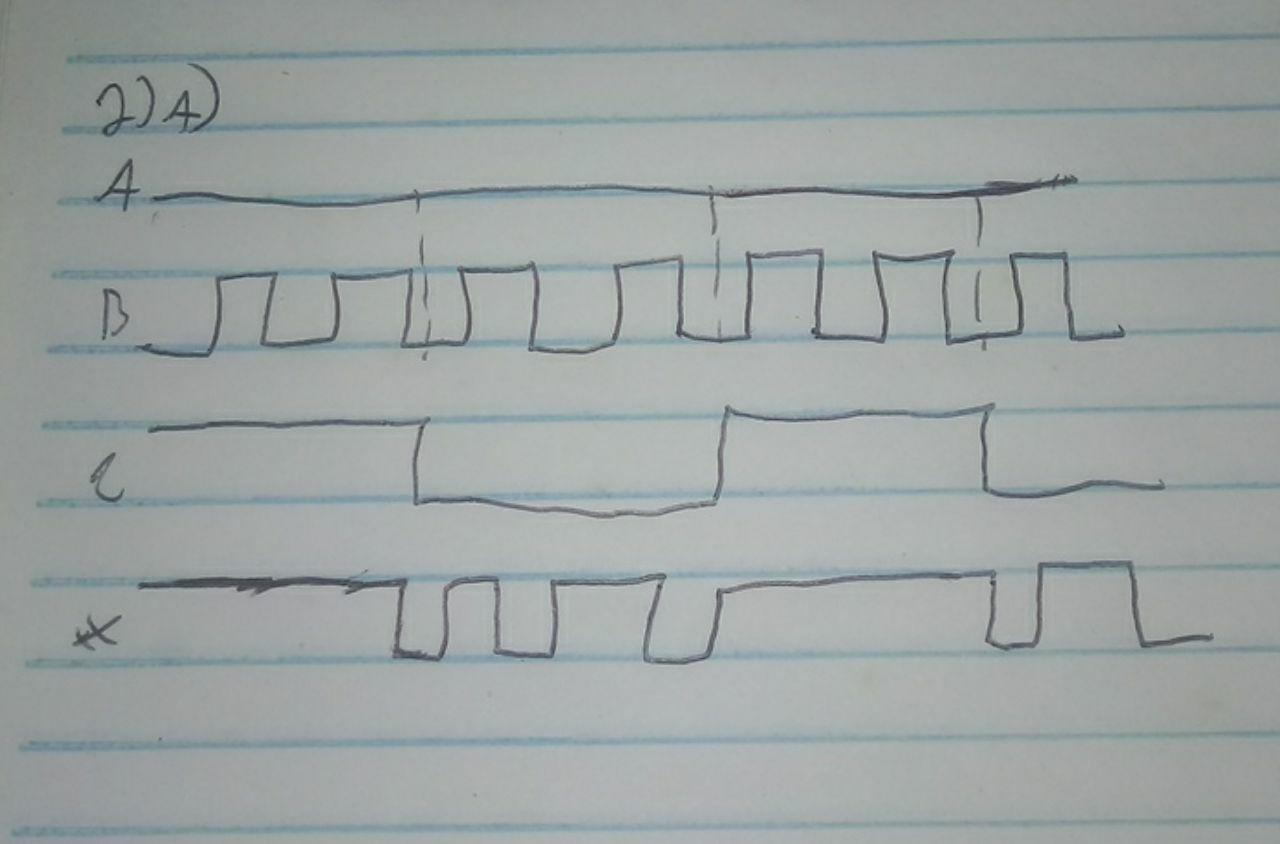 2)A)
A
B
C
X